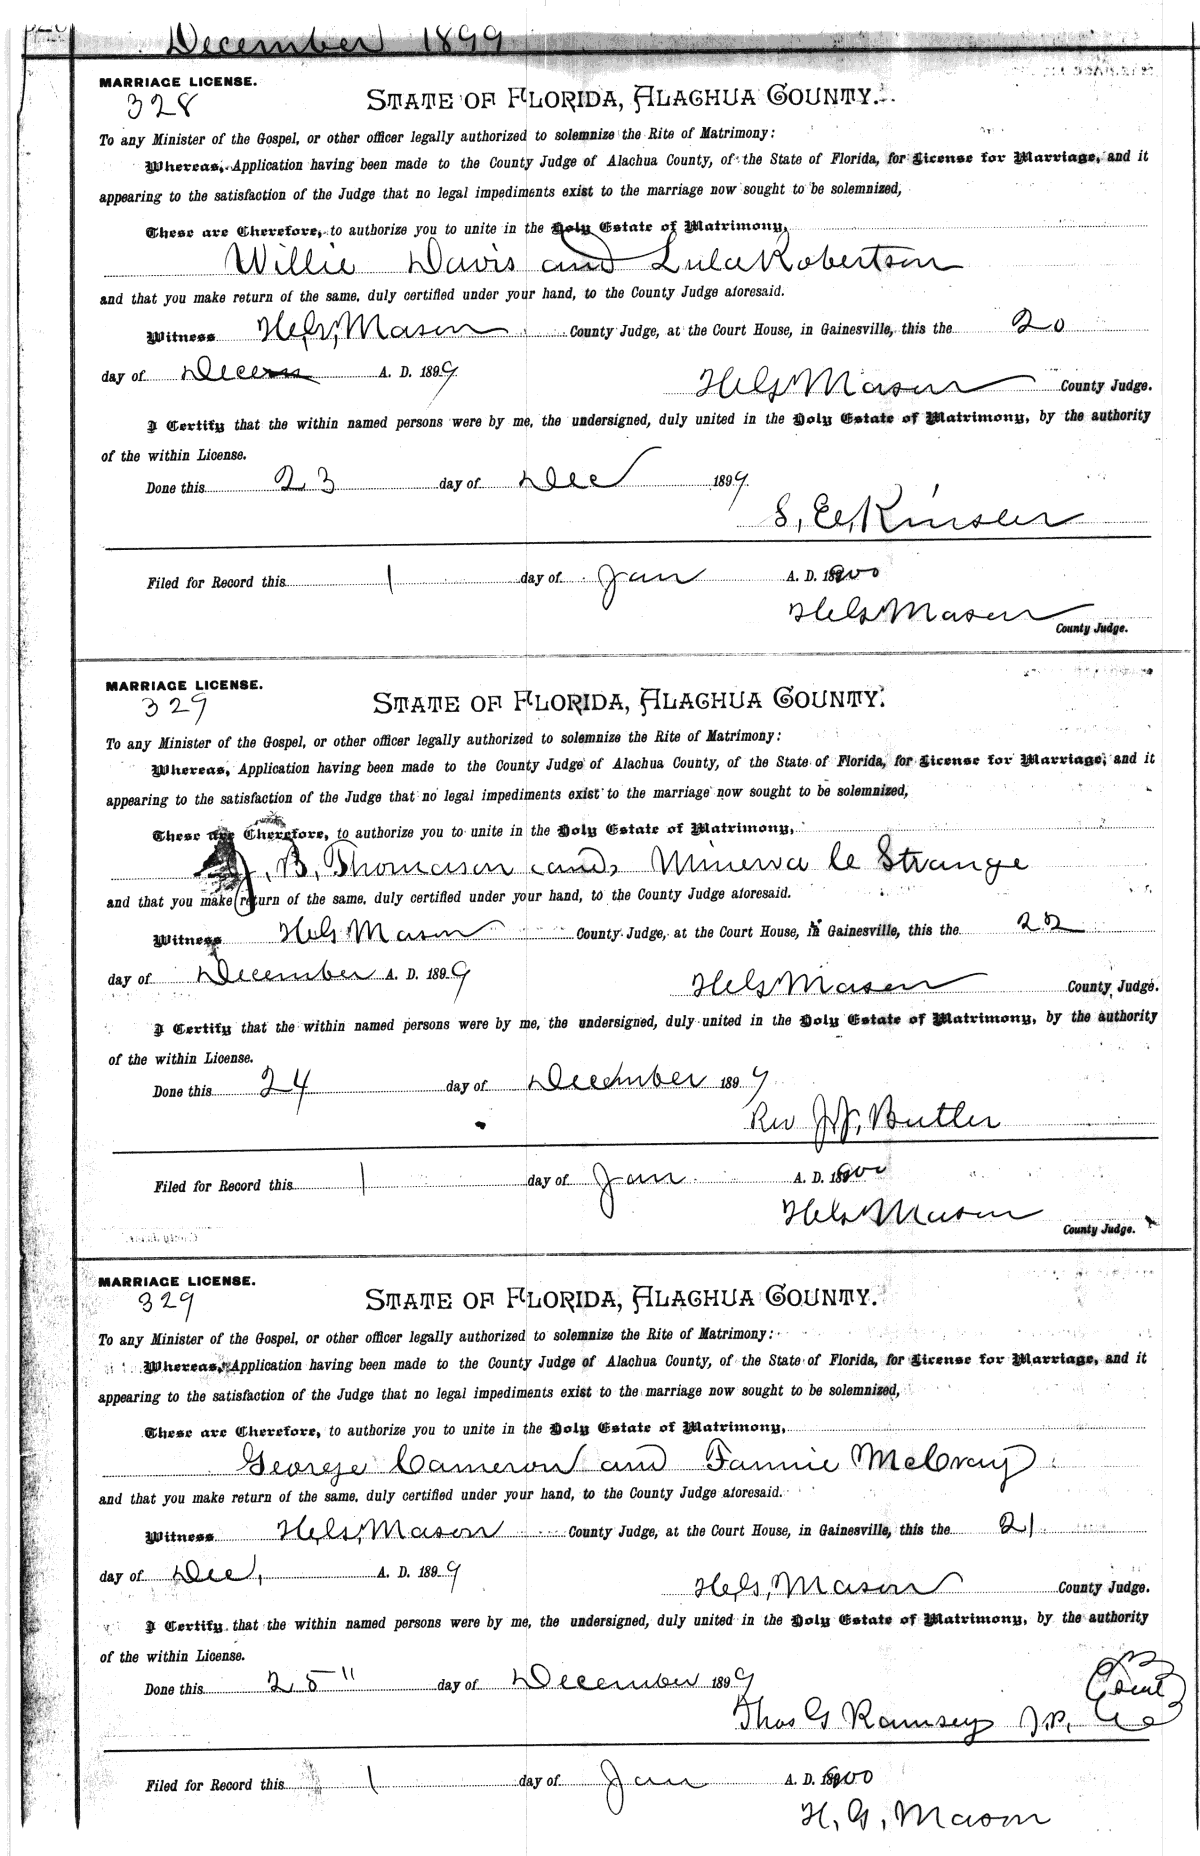 December 1899
MARRIAGE LICENSE.
328
STATE OF FLORIDA, ALACHUA COUNTY.
To any Minister of the Gospel, or other officer legally authorized to solemnize the Rite of Matrimony:
Whereas, Application having been made to the County Judge of Alachua County, of the State of Florida, for License for Marriage, and it
appearing to the satisfaction of the Judge that no legal impediments exist to the marriage now sought to be solemnized,
These are Therefore, to authorize you to unite in the Holy Estate of Matrimony,
Willie Davis and Lula Robertson
and that you make return of the same, duly certified under your hand, to the County Judge aforesaid.
Witness H. G. Mason County Judge, at the Court House, in Gainesville, this the 20
day of Decem A. D. 1899
H G Mason County Judge.
I Certify that the within named persons were by me, the undersigned, duly united in the Holy Estate of Matrimony, by the authority
of the within License.
Done this 23 day of Dec 1899.
S. E. Kinsler
Filed for Record this 1 day of Jan A. D. 1900
H G Mason
County Judge.
MARRIAGE LICENSE.
329
STATE OF FLORIDA, ALACHUA COUNTY.
To any Minister of the Gospel, or other officer legally authorized to solemnize the Rite of Matrimony:
Whereas, Application having been made to the County Judge of Alachua County, of the State of Florida, for License for Marriage, and it
appearing to the satisfaction of the Judge that no legal impediments exist to the marriage now sought to be solemnized,
These are Therefore, to authorize you to unite in the Holy Estate of Matrimony,
J. B. Thomason and Minerva le Strange
and that you make return of the same, duly certified under your hand, to the County Judge aforesaid.
Witness H G Mason County Judge, at the Court House, in Gainesville, this the 22
day of December A. D. 1899
H G Mason County Judge.
I Certify that the within named persons were by me, the undersigned, duly united in the Holy Estate of Matrimony, by the authority
of the within License.
Done this 24 day of December 1899
Rev J. J. Butler
Filed for Record this 1 day of Jan A. D. 1900
H G Mason
County Judge.
MARRIAGE LICENSE.
329
STATE OF FLORIDA, ALACHUA COUNTY.
To any Minister of the Gospel, or other officer legally authorized to solemnize the Rite of Matrimony:
Whereas, Application having been made to the County Judge of Alachua County, of the State of Florida, for License for Marriage, and it
appearing to the satisfaction of the Judge that no legal impediments exist to the marriage now sought to be solemnized,
These are Therefore, to authorize you to unite in the Holy Estate of Matrimony,
George Cameron and Fannie McCray
and that you make return of the same, duly certified under your hand, to the County Judge aforesaid.
Witness H. G. Mason County Judge, at the Court House, in Gainesville, this the 21
day of Dec, A. D. 1899
H. G. Mason County Judge.
I Certify that the within named persons were by me, the undersigned, duly united in the Holy Estate of Matrimony, by the authority
of the within License.
Done this 25" day of December 1899
Thos G Ramsey J.P.
Filed for Record this 1 day of Jan A. D. 1900
H. G. Mason